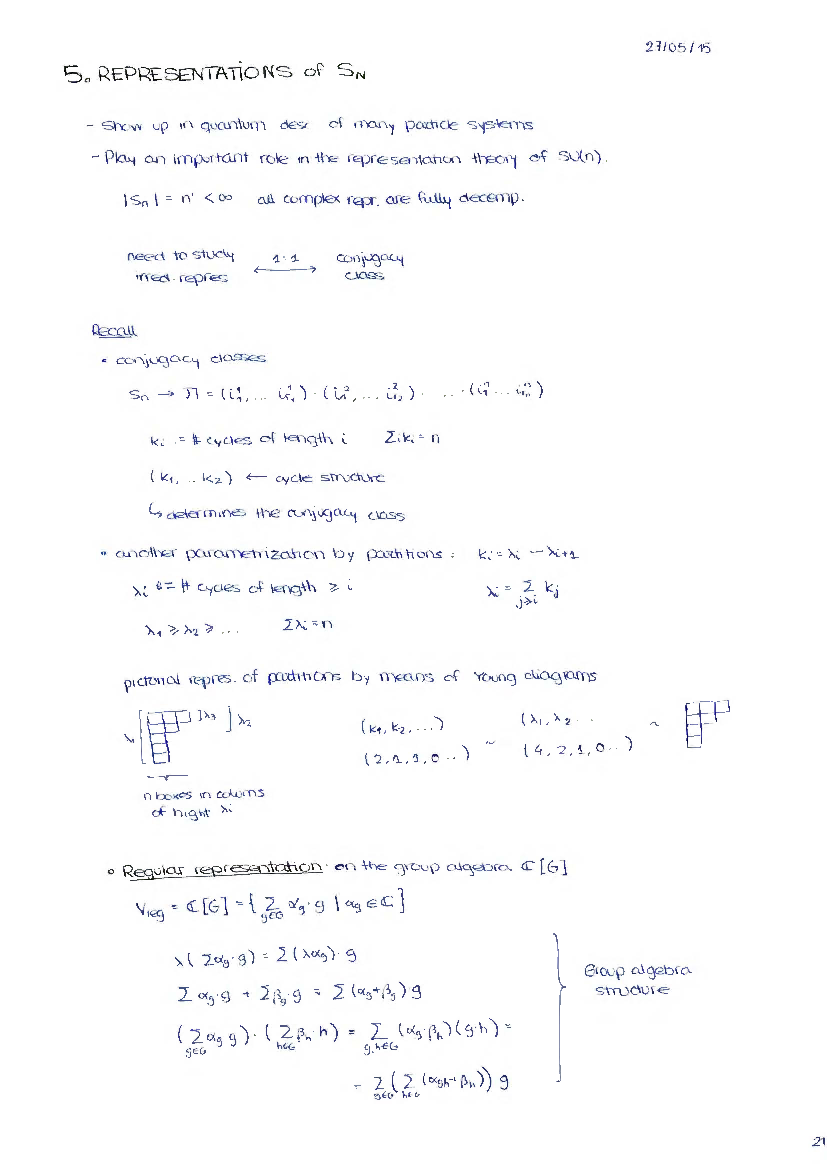 27/05/15
5. REPRESENTATIONS of SN
- Show up in quantum desc of many particle systems
- Play an important role in the representation theory of SU(n).
|Sn| = n! < ∞ all complex repr. are fully decomp.
need to study 1:1 conjugacy
irred. repres ⟷ class
Recall
• conjugacy classes
Sn → Π = (i₁¹, ... i¹r₁) · (i₁², ... i²r₂) · ... · (i₁ⁿ ... iⁿrₙ)
ki := # cycles of length i Σiki = n
(k1, .. k2) ← cycle structure
↳ determines the conjugacy class
• another parametrization by partitions : ki = λi - λi+1
λi := # cycles of length ≥ i λi = Σ kj
j≥i
λ1 ≥ λ2 ≥ ... Σλi = n
pictorial repres. of partitions by means of Young diagrams
λ1 ]λ3 ]λ2 (k1, k2, ...) ~ (λ1, λ2 ... ~
(2,1,1,0..) (4,2,1,0..)
n boxes in colums
of hight λi
• Regular representation: on the group algebra ℂ[G]
Vreg = ℂ[G] = { Σ αg·g | αg ∈ ℂ }
g∈G
λ(Σαg·g) = Σ(λαg)·g
Σ αg·g + Σβg·g = Σ(αg+βg)g
Group algebra
structure
(Σαg g)·(Σβh·h) = Σ (αg·βh)(g·h) =
g∈G h∈G g,h∈G
= Σ(Σ(αgh⁻¹ βh)) g
g∈G h∈G
21